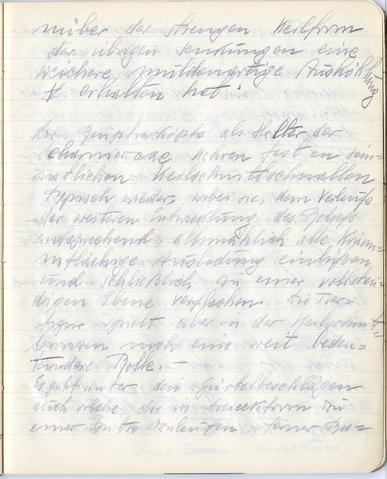 nüber der strengen Keilform
der übrigen Sendungen eine
weichere, muldenartige Aushöhlung
erhalten hat.
Die als Hälter der
Scharnieraxe kehren fast an säm-
matlichen Keilschnittschnallen
typisch wieder, wobei sie, dem Verlaufe
der weiteren Entwicklung des
entsprechend, allmählich alle
flächige Ausladung einbüssen
und schließlich zu einer vollstän-
digen Ebene verflachen. Die Tier-
figur spielt aber in der Keilschnitt-
noch eine weit bedeu-
tendere Rolle. —
Es gibt unter den Gürtelbeschlägen
auch solche, die in Dreiecksform zu
einer Spitze auslaufen. Ferner